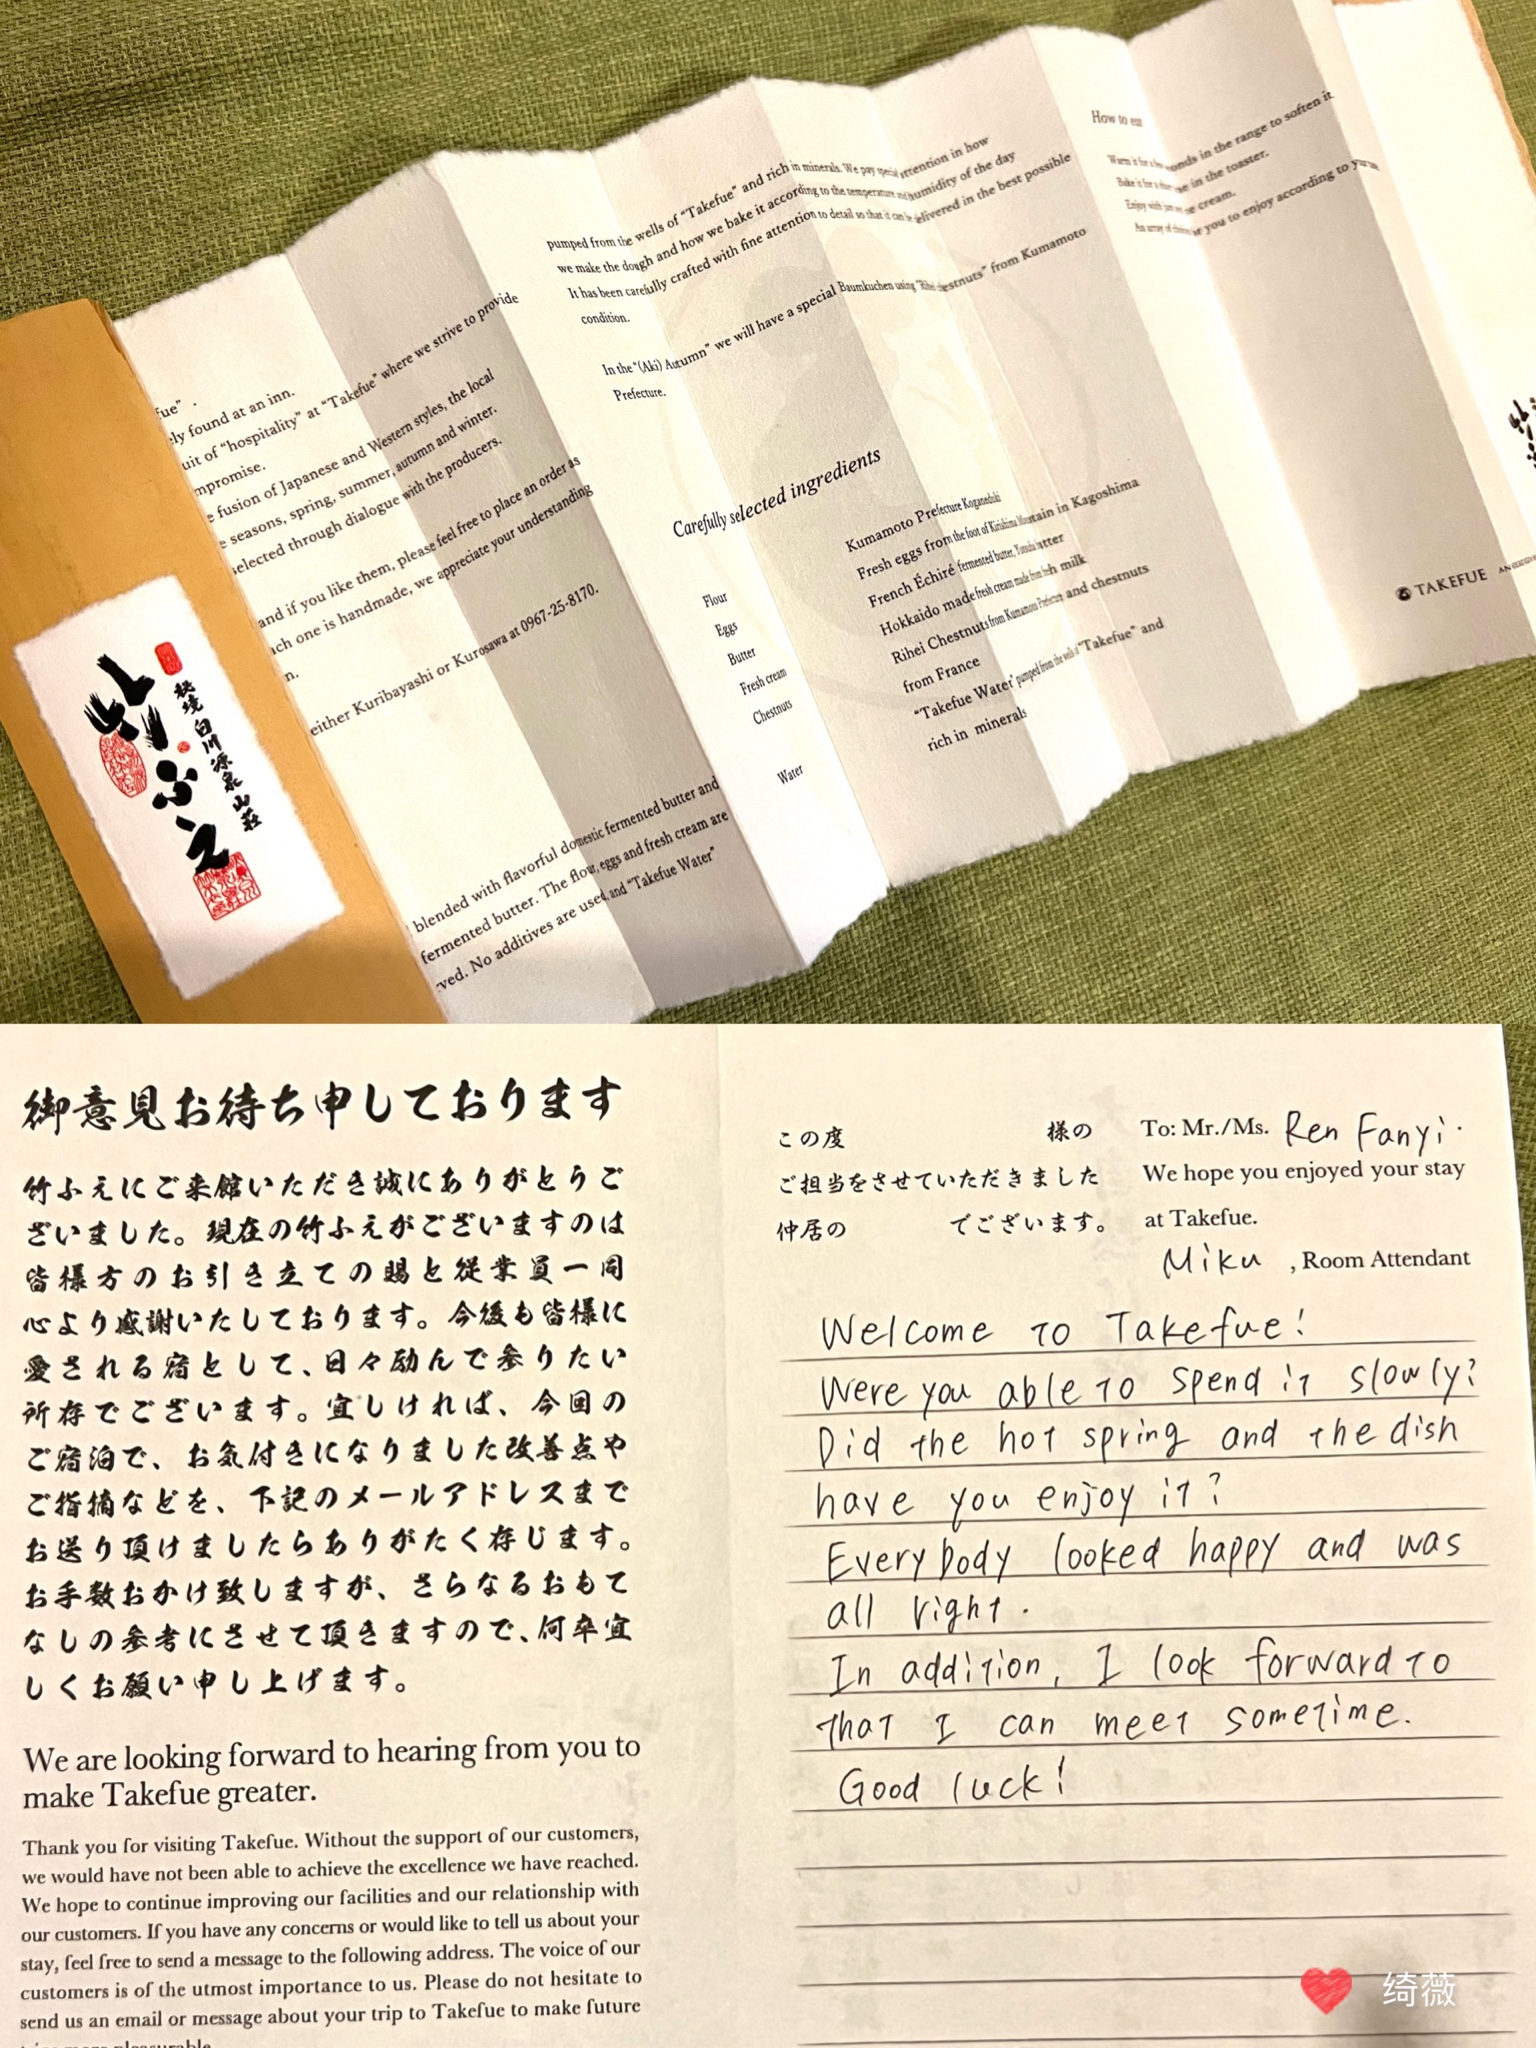 fue”.
ly found at an inn.
uit of “hospitality” at “Takefue” where we strive to provide
mpromise.
e fusion of Japanese and Western styles, the local
e seasons, spring, summer, autumn and winter.
selected through dialogue with the producers.
and if you like them, please feel free to place an order as
ach one is handmade, we appreciate your understanding
n.
either Kuribayashi or Kurosawa at 0967-25-8170.
blended with flavorful domestic fermented butter and
fermented butter. The flour, eggs and fresh cream are
rved. No additives are used and “Takefue Water”
pumped from the wells of “Takefue” and rich in minerals. We pay special attention in how
we make the dough and how we bake it according to the temperature and humidity of the day
It has been carefully crafted with fine attention to detail so that it can be delivered in the best possible
condition.
In the “(Aki) Autumn” we will have a special Baumkuchen using “Rihei chestnuts” from Kumamoto
Prefecture.
Carefully selected ingredients
Flour
Kumamoto Prefecture
Eggs
Fresh eggs from the foot of Kirishima Mountain in Kagoshima
Butter
French Échiré fermented butter, butter
Fresh cream
Hokkaido made fresh cream made from fresh milk
Chestnuts
Rihei Chestnuts from Kumamoto Prefecture and chestnuts
from France
Water
“Takefue Water” pumped from the wells of “Takefue” and
rich in minerals
How to eat
Warm it for a few seconds in the range to soften it.
Bake it for a time in the toaster.
Enjoy with ice cream.
An array of choices for you to enjoy according to
TAKEFUE
竹ふえ
秘境白川源泉山荘
御意見お待ち申しております
竹ふえにご来館いただき誠にありがとうご
ざいました。現在の竹ふえがございますのは
皆様方のお引き立ての賜と従業員一同
心より感謝いたしております。今後も皆様に
愛される宿として、日々励んで参りたい
所存でございます。宜しければ、今回の
ご宿泊で、お気付きになりました改善点や
ご指摘などを、下記のメールアドレスまで
お送り頂けましたらありがたく存じます。
お手数おかけ致しますが、さらなるおもて
なしの参考にさせて頂きますので、何卒宜
しくお願い申し上げます。
We are looking forward to hearing from you to
make Takefue greater.
Thank you for visiting Takefue. Without the support of our customers,
we would have not been able to achieve the excellence we have reached.
We hope to continue improving our facilities and our relationship with
our customers. If you have any concerns or would like to tell us about your
stay, feel free to send a message to the following address. The voice of our
customers is of the utmost importance to us. Please do not hesitate to
send us an email or message about your trip to Takefue to make future
この度 様の
ご担当をさせていただきました
仲居の でございます。
To: Mr./Ms. Ren Fanyi.
We hope you enjoyed your stay
at Takefue.
Miku , Room Attendant
Welcome to Takefue!
Were you able to spend it slowly?
Did the hot spring and the dish
have you enjoy it?
Everybody looked happy and was
all right.
In addition, I look forward to
that I can meet sometime.
Good luck!
绮薇